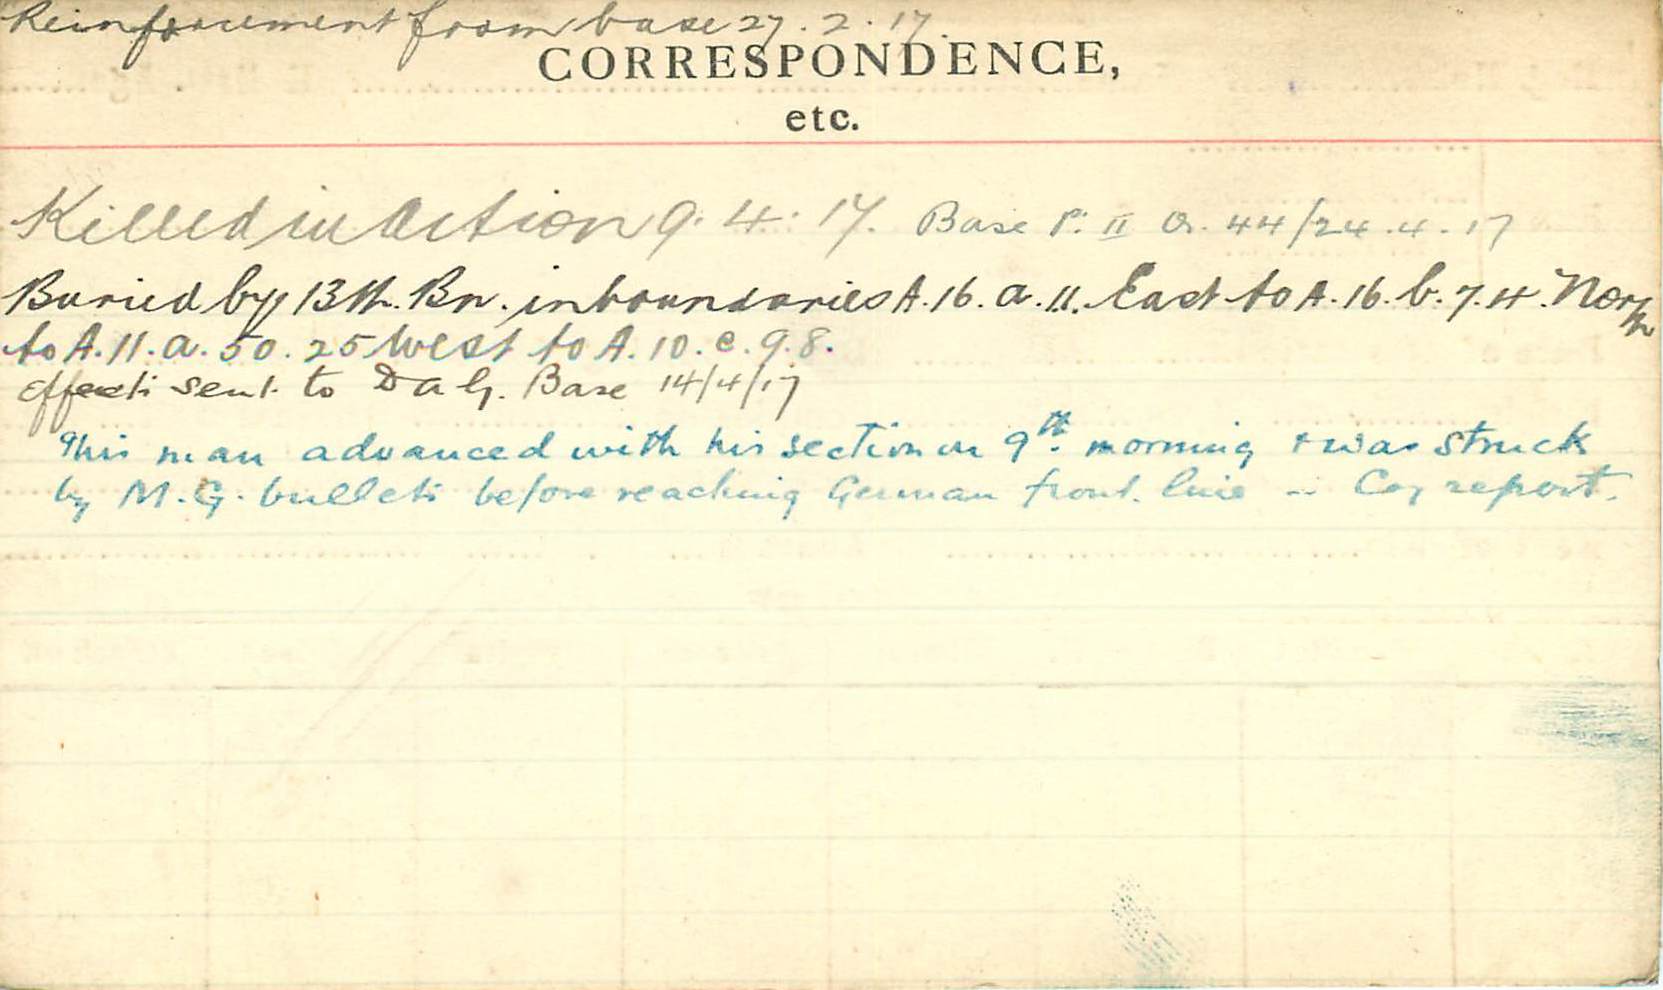 Reinforcement from base 27.2.17.
CORRESPONDENCE,
etc.
Killed in Action 9.4.17. Base P. II O. 44/24.4.17
Buried by 13th. Bn. in boundaries A.16.a.11. East to A.16.b.7.4. North
to A.11.a.50.25 West to A.10.c.9.8.
Effects sent to DAG. Base 14/4/17
This man advanced with his section on 9th. morning + was struck
by M.G. bullets before reaching German front line - Coy report.